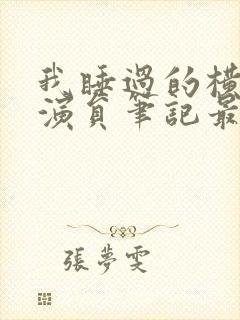 我睡過的橫
演員筆記最
張夢雯